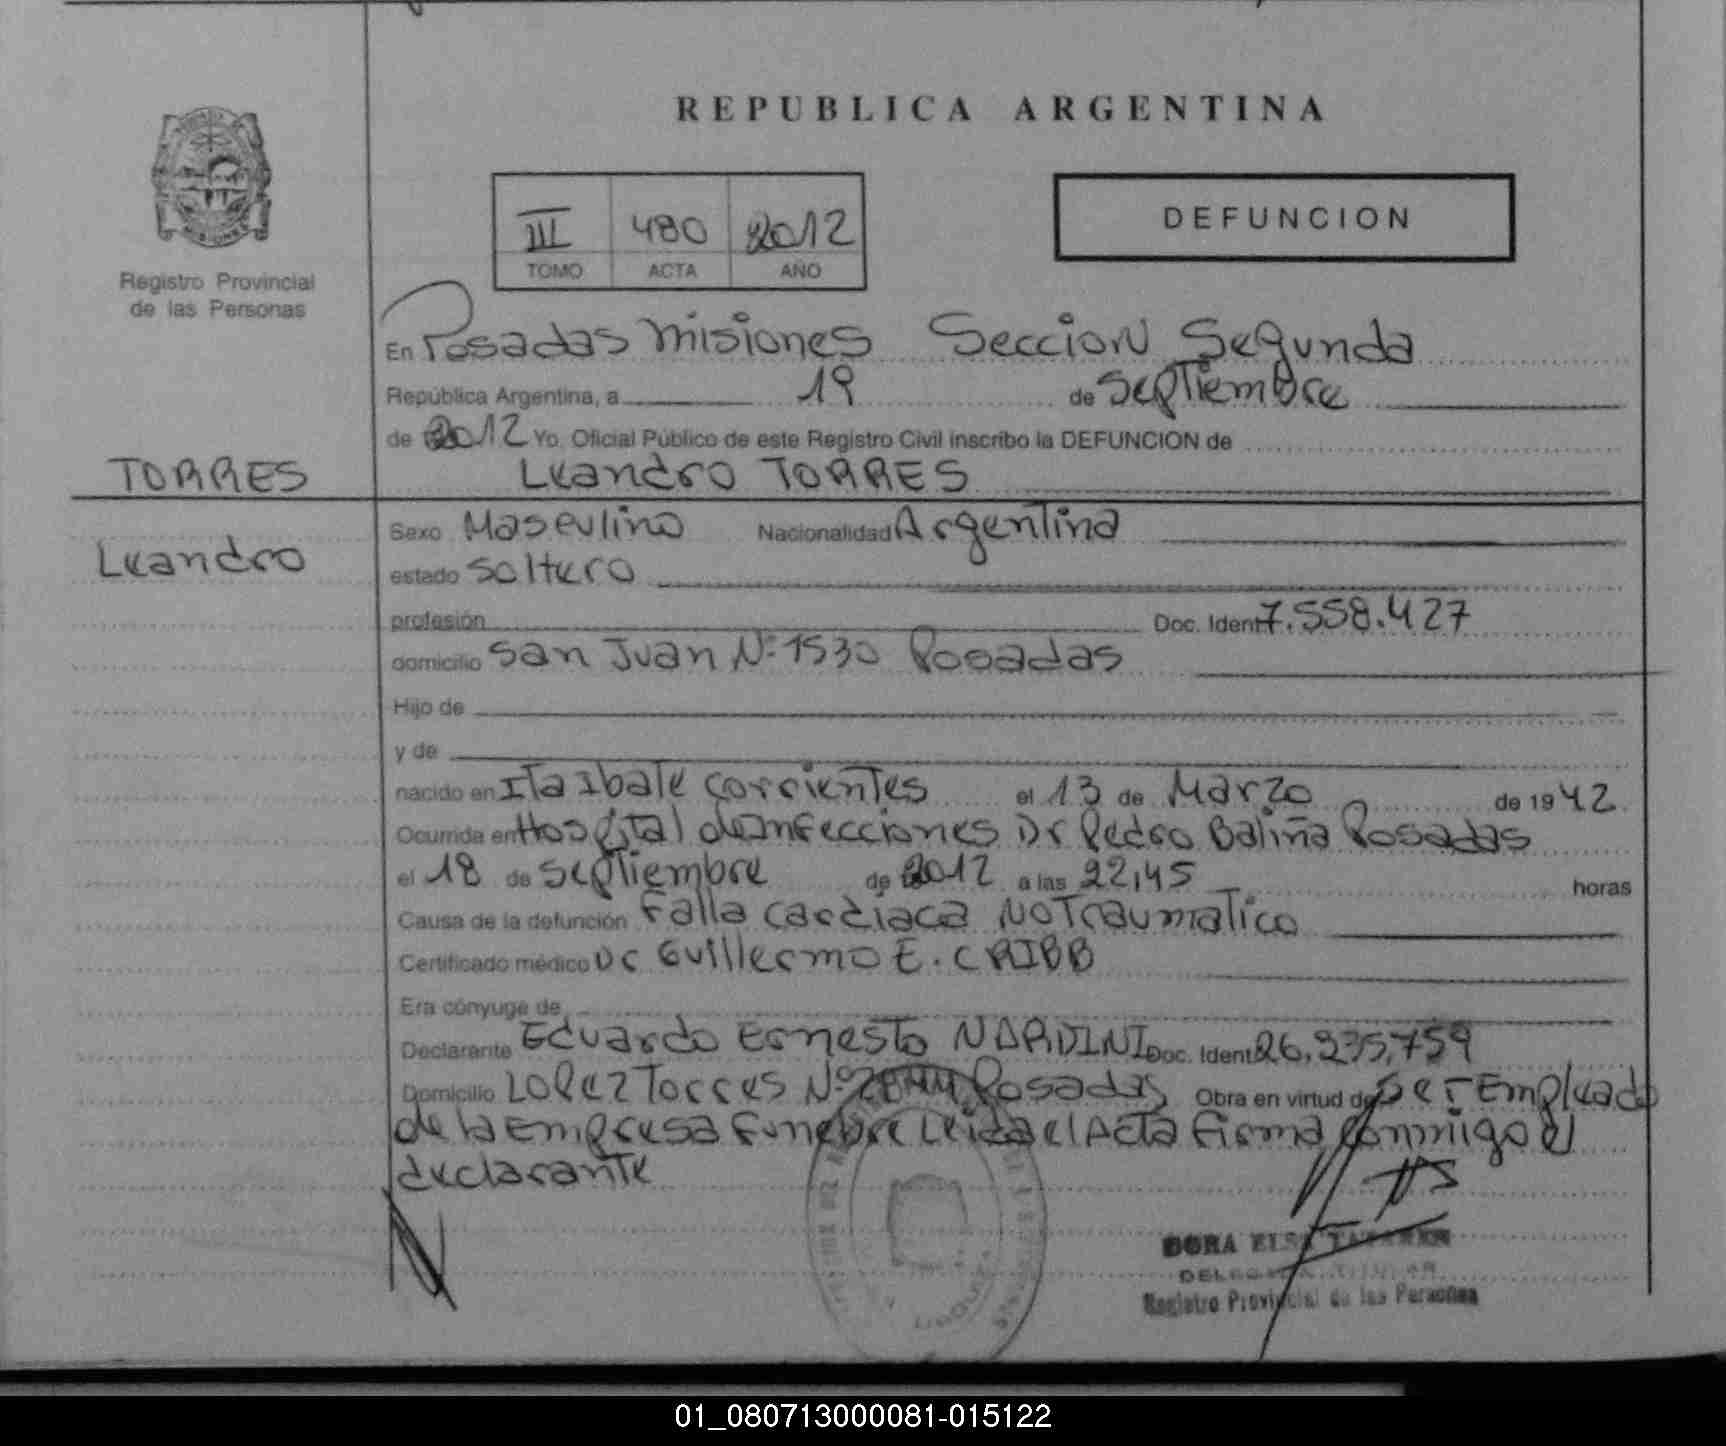 REPUBLICA ARGENTINA
III 480 2012
TOMO ACTA AÑO
DEFUNCION
Registro Provincial
de las Personas
En Posadas Misiones Seccion Segunda
República Argentina, a 19 de Septiembre
de 2012 Yo. Oficial Público de este Registro Civil inscribo la DEFUNCION de
TORRES
Leandro TORRES
Leandro
Sexo Masculino Nacionalidad Argentina
estado Soltero
profesión Doc. Ident 7.558.427
domicilio San Juan Nº 1530 Posadas
Hijo de
y de
nacido en Ita Ibate Corrientes el 13 de Marzo de 1942
Ocurrida en Hospital de Infecciones Dr Pedro Baliña Posadas
el 18 de Septiembre de 2012 a las 22,45 horas
Causa de la defunción Falla Cardiaca No Traumatico
Certificado médico Dr Guillermo E. CRIBB
Era cónyuge de
Declarante Eduardo Ernesto NARDINI Doc. Ident 26.235.759
Domicilio Lopez Torres Nº Posadas Obra en virtud de ser Empleado
de la Empresa Funebre Leida el Acta Firma Conmigo el
declarante
DORA ELSA
Registro Provincial de las Personas
01_080713000081-015122